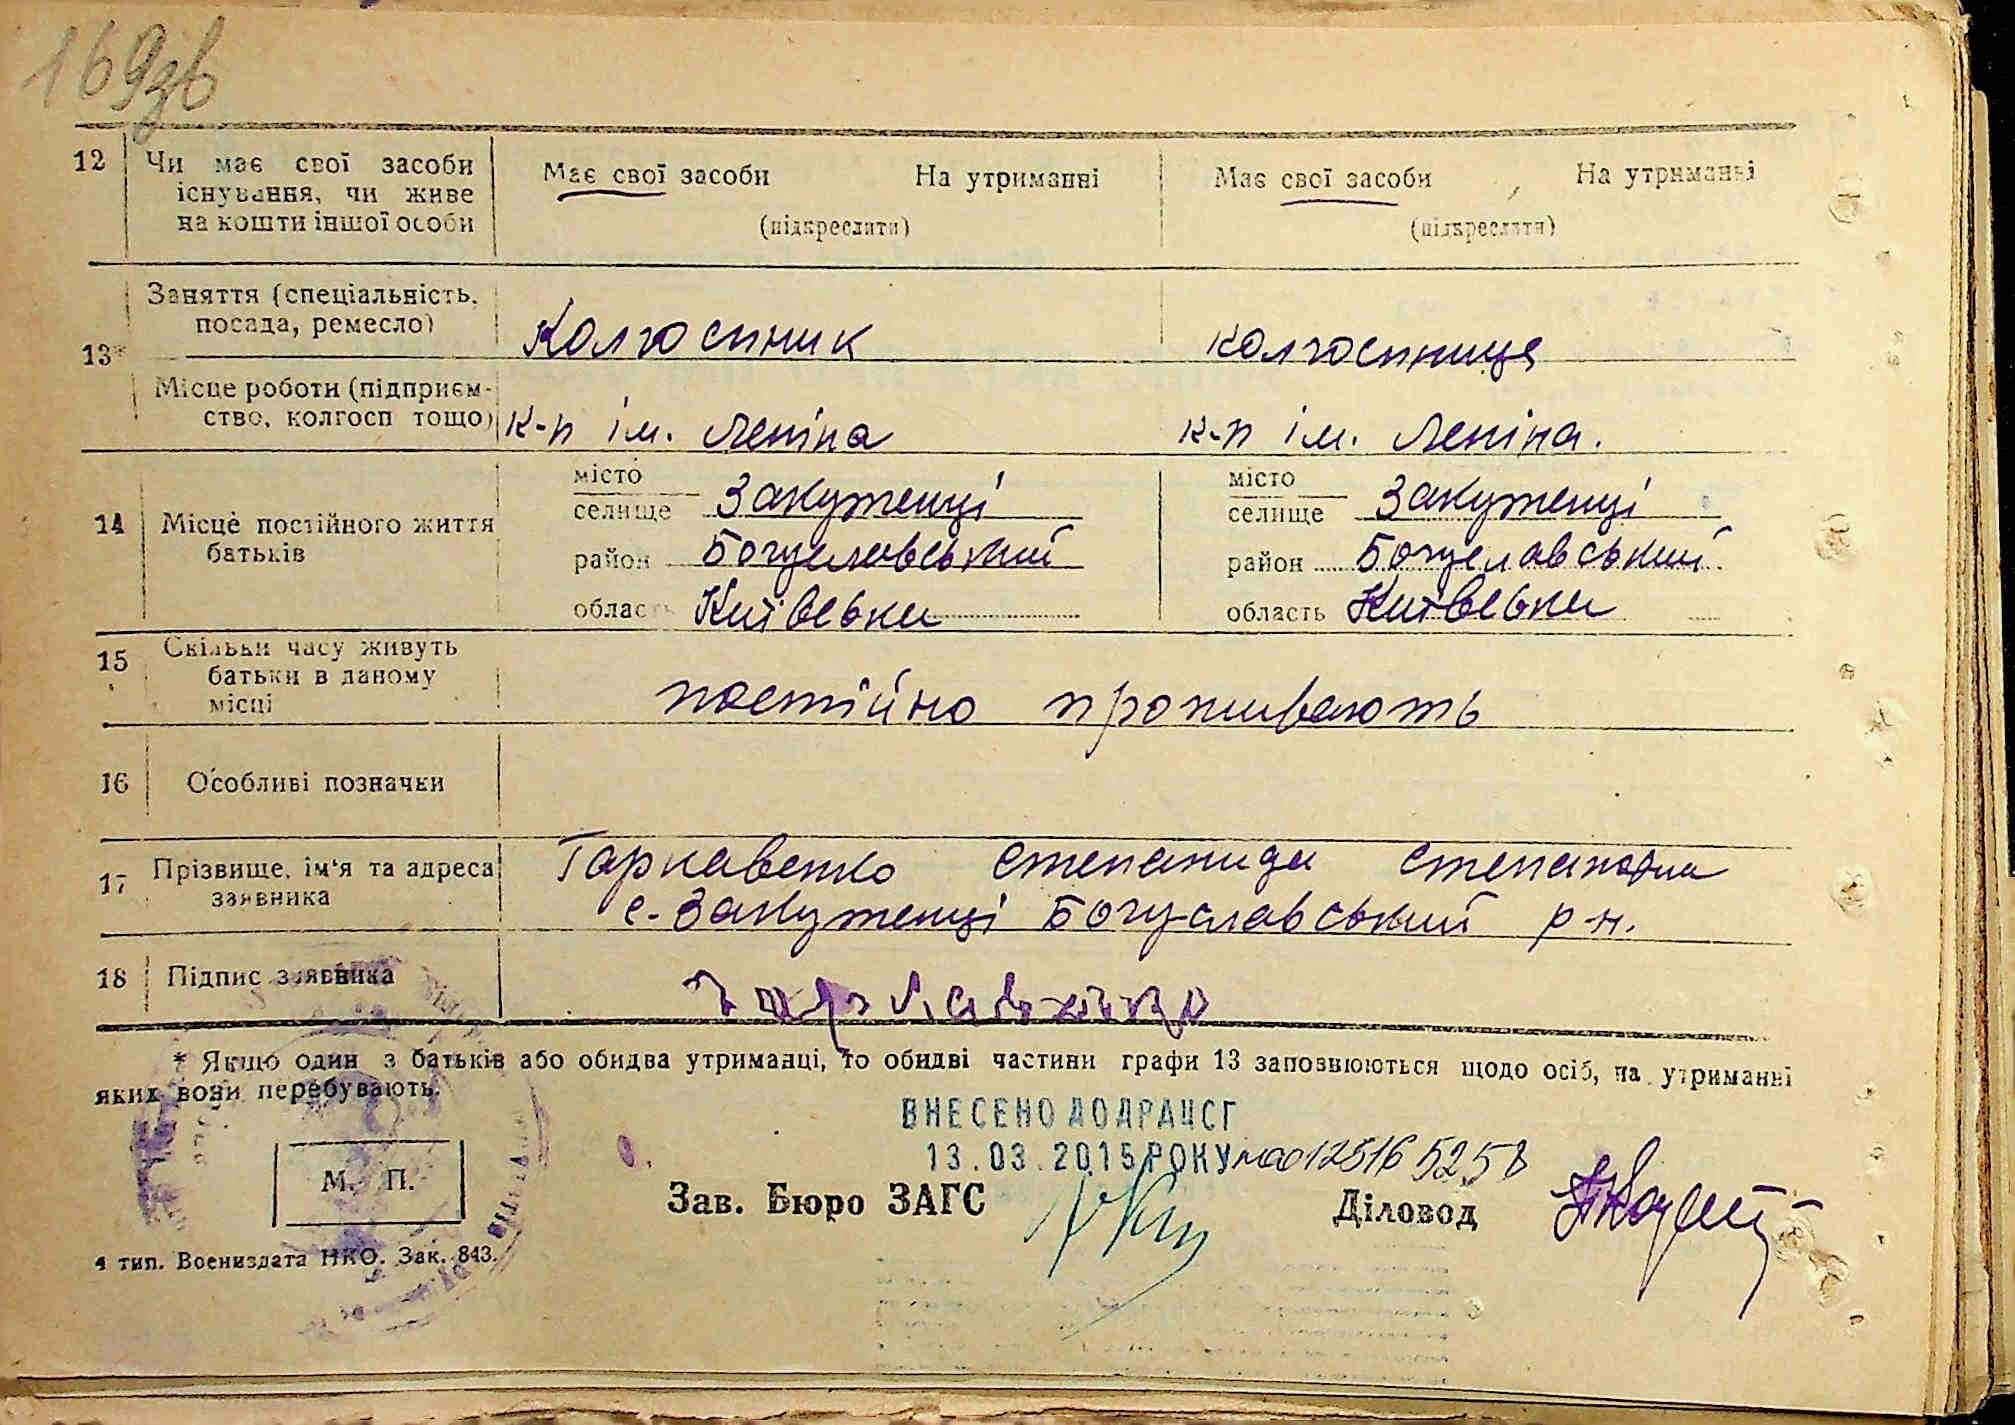 169зв
12 Чи має свої засоби існування, чи живе на кошти іншої особи
Має свої засоби На утриманні
(підкреслити)
Має свої засоби На утриманні
(підкреслити)
13* Заняття (спеціальність, посада, ремесло)
Колгоспник колгоспниця
Місце роботи (підприєм-
ство, колгосп тощо)
к-п ім. Леніна к-п ім. Леніна.
14 Місце постійного життя батьків
місто
селище Закутенці
район Богуславський
область Київська
місто
селище Закутенці
район Богуславський
область Київська
15 Скільки часу живуть батьки в даному місці
постійно проживають
16 Особливі позначки
17 Прізвище, ім'я та адреса заявника
Гаркавенко Степанида Степановна
с. Закутенці Богуславський р-н.
18 Підпис заявника
Гаркавенко
* Якщо один з батьків або обидва утриманці, то обидві частини графи 13 заповнюються щодо осіб, на утриманні
яких вони перебувають.
ВНЕСЕНО ДО ДРАЦСГ
13.03.2015 РОКУ 00125165258
М. П.
Зав. Бюро ЗАГС
Діловод
4 тип. Воениздата НКО. Зак. 843.